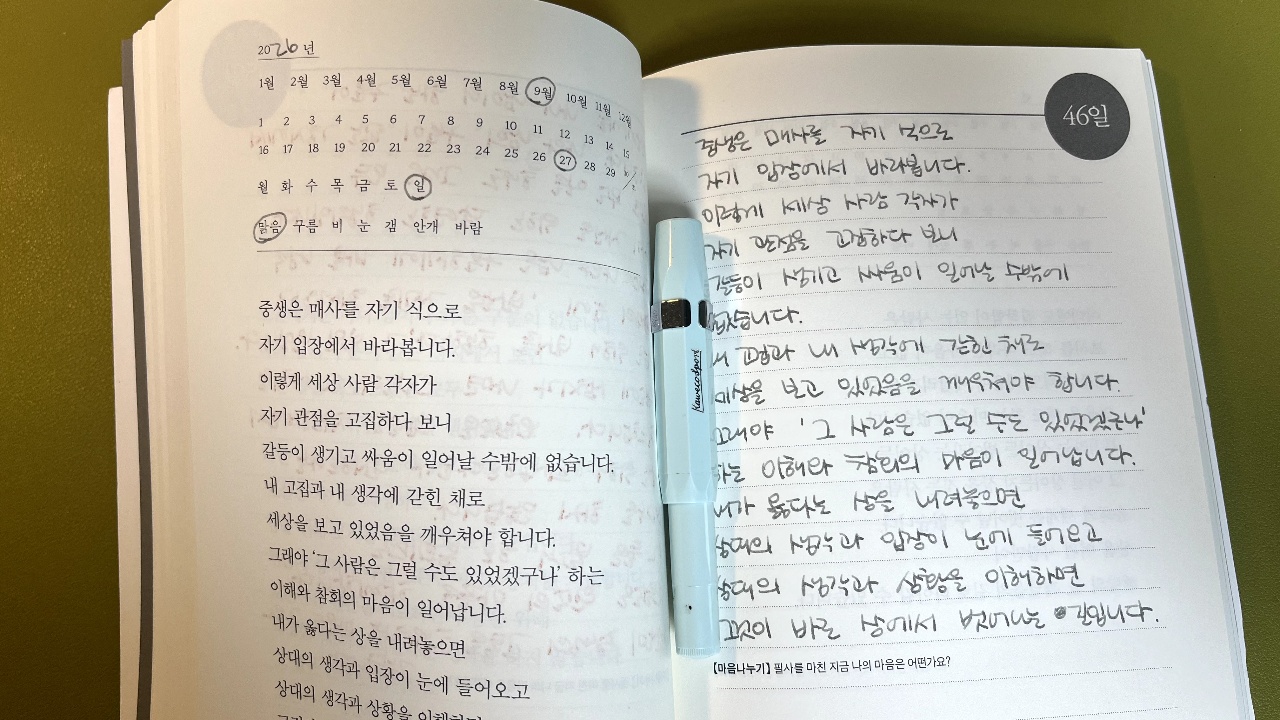 2026년
1월 2월 3월 4월 5월 6월 7월 8월 9월 10월 11월 12월
1 2 3 4 5 6 7 8 9 10 11 12 13 14 15
16 17 18 19 20 21 22 23 24 25 26 27 28 29
월 화 수 목 금 토 일
맑음 구름 비 눈 갬 안개 바람
중생은 매사를 자기 식으로
자기 입장에서 바라봅니다.
이렇게 세상 사람 각자가
자기 관점을 고집하다 보니
갈등이 생기고 싸움이 일어날 수밖에 없습니다.
내 고집과 내 생각에 갇힌 채로
세상을 보고 있었음을 깨우쳐야 합니다.
그래야 '그 사람은 그럴 수도 있었겠구나' 하는
이해와 참회의 마음이 일어납니다.
내가 옳다는 상을 내려놓으면
상대의 생각과 입장이 눈에 들어오고
상대의 생각과 상황을
kaweco sport
46일
중생은 매사를 자기 식으로
자기 입장에서 바라봅니다.
이렇게 세상 사람 각자가
자기 관점을 고집하다 보니
갈등이 생기고 싸움이 일어날 수밖에
없습니다.
내 고집과 내 생각에 갇힌 채로
세상을 보고 있었음을 깨우쳐야 합니다.
그래야 '그 사람은 그럴 수도 있었겠구나'
하는 이해와 참회의 마음이 일어납니다.
내가 옳다는 상을 내려놓으면
상대의 생각과 입장이 눈에 들어오고
상대의 생각과 상황을 이해하면
그것이 바로 상에서 벗어나는 길입니다.
[마음나누기] 필사를 마친 지금 나의 마음은 어떤가요?